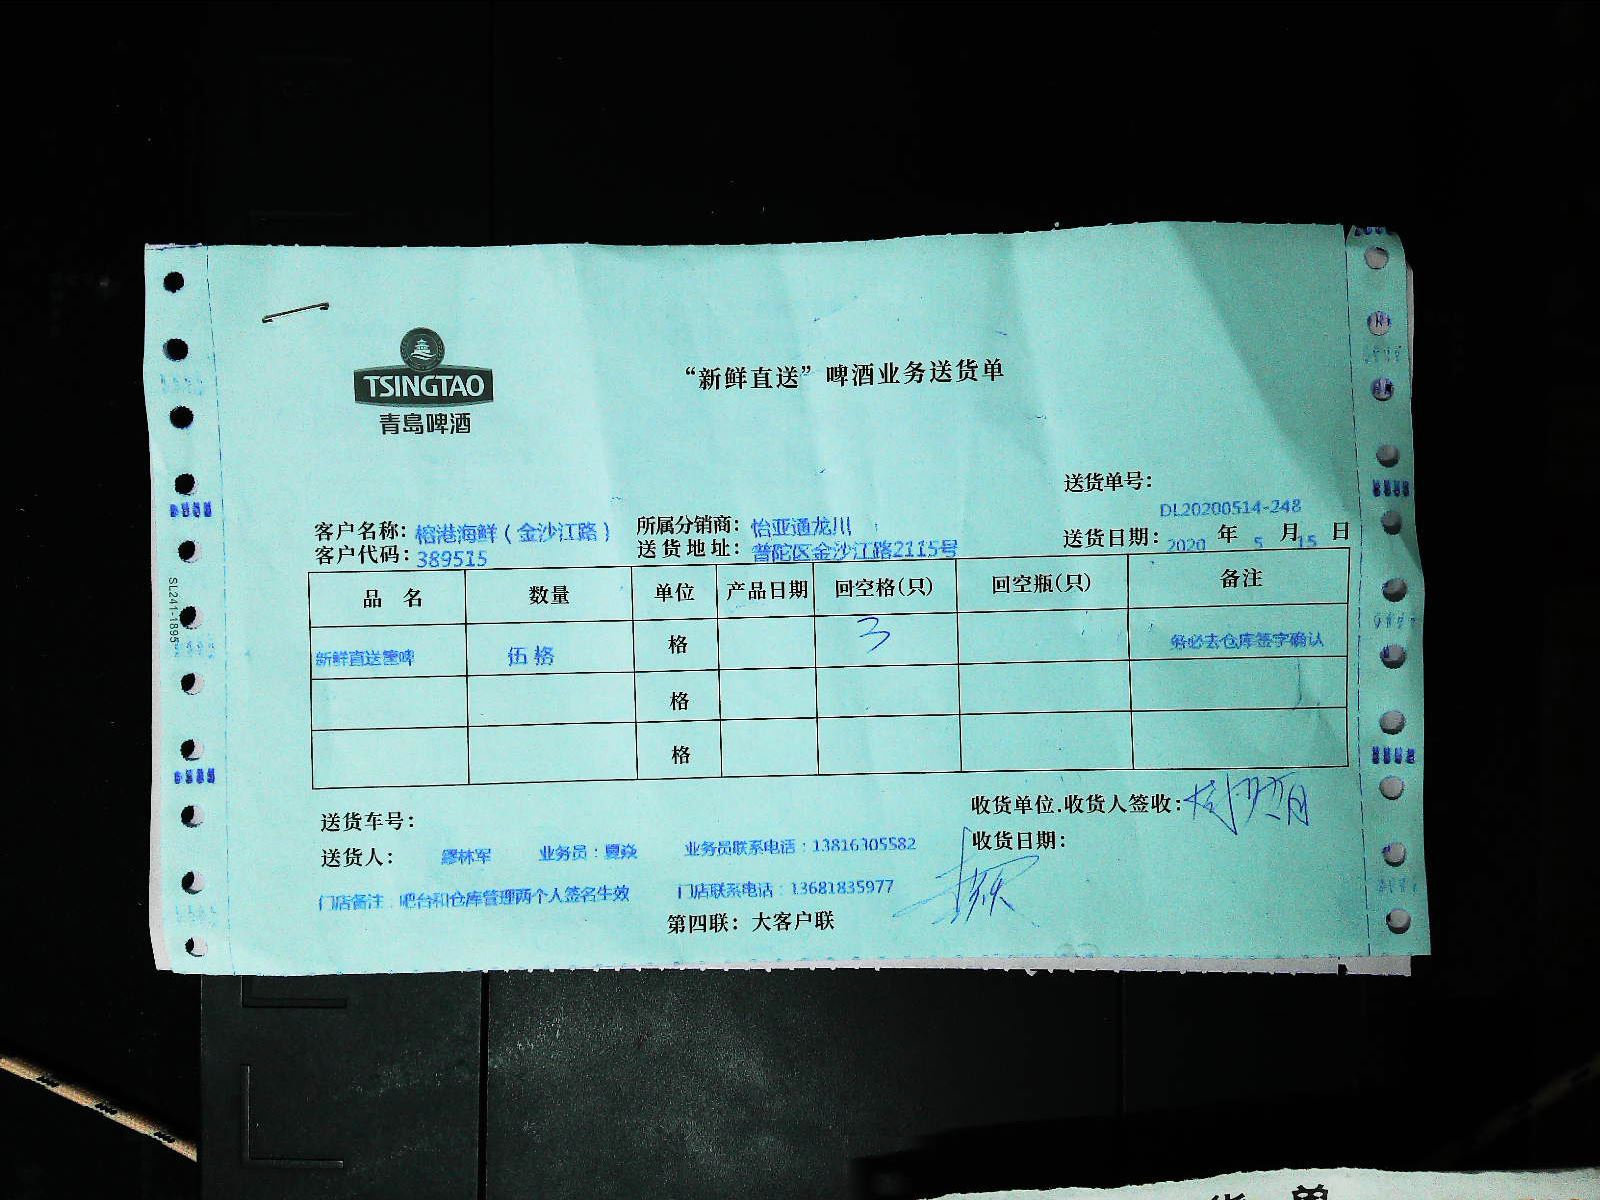 TSINGTAO
青岛啤酒
“新鲜直送”啤酒业务送货单
送货单号：
DL20200514-248
客户名称：榕港海鲜（金沙江路） 所属分销商：怡亚通龙川 送货日期：2020 年 5 月 15 日
客户代码：389515 送货地址：普陀区金沙江路2115号
品 名 数量 单位 产品日期 回空格(只) 回空瓶(只) 备注
新鲜直送筐啤 伍格 格 3 务必去仓库签字确认
格
格
送货车号： 收货单位.收货人签收：
送货人： 缪林军 业务员：夏焱 业务员联系电话：13816305582 收货日期：
门店备注 吧台和仓库管理两个人签名生效 门店联系电话：13681835977
第四联：大客户联
SL241-1895
货 单